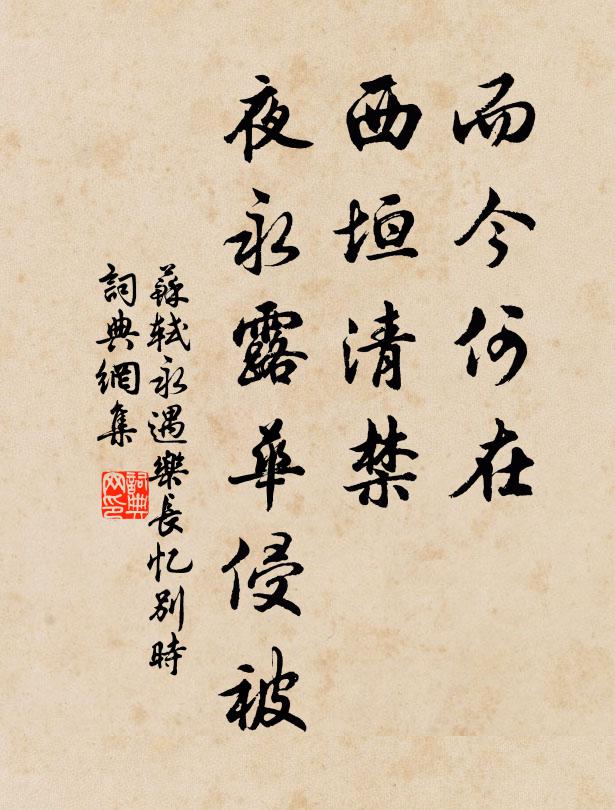 而今何在
西垣清禁
夜永露華侵被
蘇軾永遇樂長忆别時
詞典網集
詞典
网印